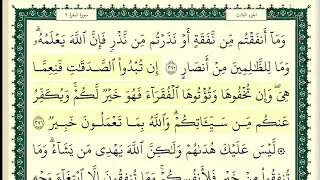 الجزء الثالث سورة البقرة ٢
وَمَآ أَنفَقْتُم مِّن نَّفَقَةٍ أَوْ نَذَرْتُم مِّن نَّذْرٍ فَإِنَّ ٱللَّهَ يَعْلَمُهُۥ
وَمَا لِلظَّٰلِمِينَ مِنْ أَنصَارٍ ٢٧٠ إِن تُبْدُوا۟ ٱلصَّدَقَٰتِ فَنِعِمَّا
هِىَ وَإِن تُخْفُوهَا وَتُؤْتُوهَا ٱلْفُقَرَآءَ فَهُوَ خَيْرٌ لَّكُمْ وَيُكَفِّرُ
عَنكُم مِّن سَيِّـَٔاتِكُمْ وَٱللَّهُ بِمَا تَعْمَلُونَ خَبِيرٌ ٢٧١
لَّيْسَ عَلَيْكَ هُدَىٰهُمْ وَلَٰكِنَّ ٱللَّهَ يَهْدِى مَن يَشَآءُ وَمَا
تُنفِقُوا۟ مِنْ خَيْرٍ فَلِأَنفُسِكُمْ وَمَا تُنفِقُونَ إِلَّا ٱبْتِغَآءَ وَجْهِ